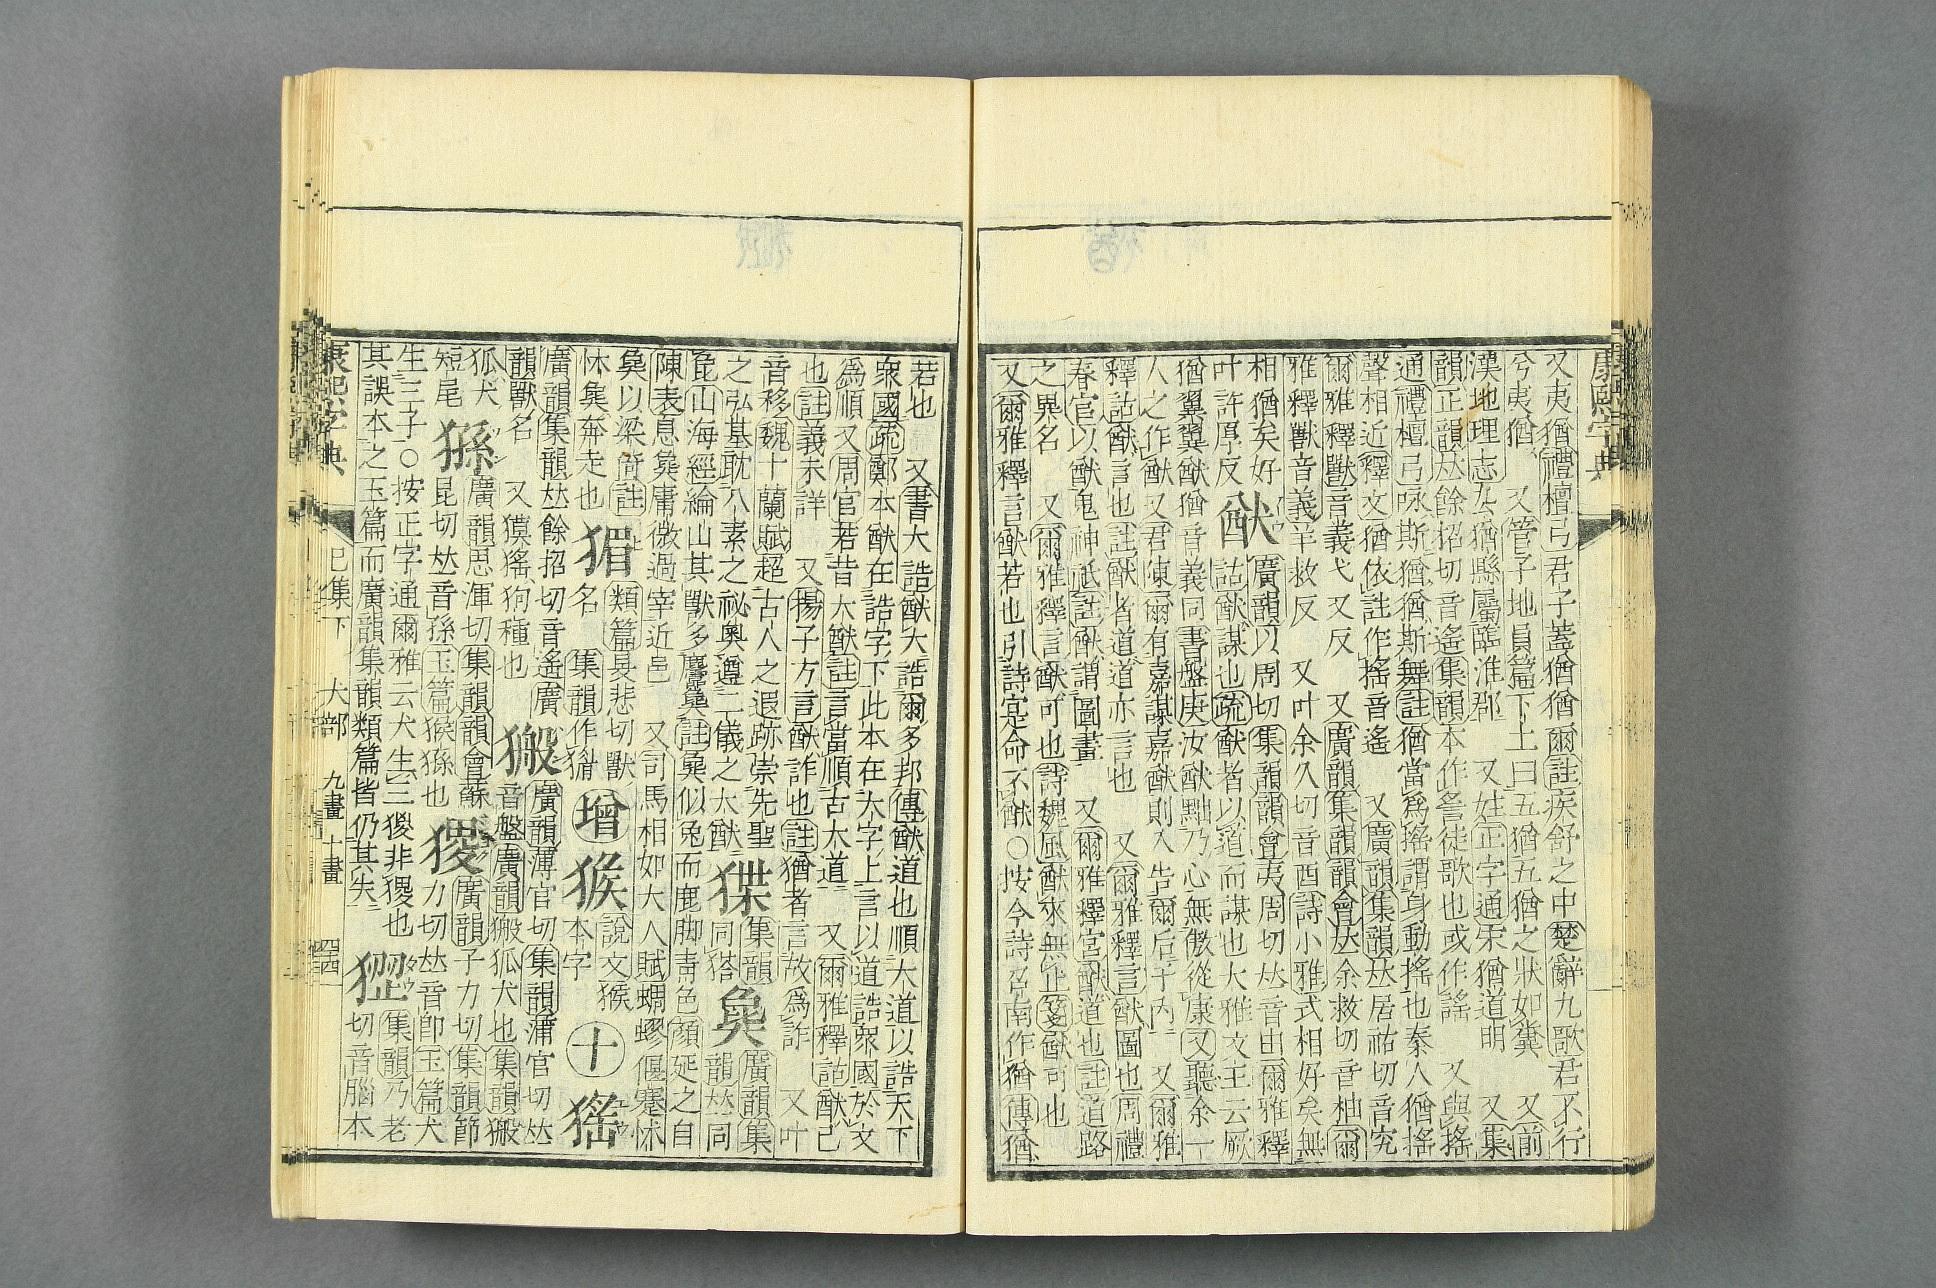 康熙字典
又夷猶禮檀弓君子蓋猶猶爾註疾舒之中楚辭九歌君不行
兮夷猶 又管子地員篇下土曰五猶五猶之狀如糞 又前
漢地理志厹猶縣屬臨淮郡 又姓正字通宋猶道明 又集
韻正韻𠀤餘招切音遙集韻本作䚻徒歌也或作謠 又與搖
通禮檀弓咏斯猶猶斯舞註猶當爲搖謂身動搖也秦人猶搖
聲相近釋文猶依註作搖音遙 又廣韻集韻𠀤居祐切音究
爾雅釋獸音義弋又反 又廣韻集韻韻會𠀤余救切音柚爾
雅釋獸音義羊救反 又叶余久切音酉詩小雅式相好矣無
相猶矣好叶許厚反
猷 廣韻以周切集韻韻會夷周切𠀤音由爾雅釋
詁猷謀也疏猷者以道而謀也大雅文王云厥
猶翼翼猷猶音義同書盤庚汝猷黜乃心無傲從康又聽余一
人之作猷 又君陳爾有嘉謀嘉猷則入告爾后于內 又爾雅
釋詁猷言也註猷者道道亦言也 又爾雅釋言猷圖也周禮
春官以猷鬼神祇註猷謂圖畫 又爾雅釋宮猷道也註道路
之異名 又爾雅釋言猷可也詩魏風猷來無止箋猷可也
又爾雅釋言猷若也引詩寔命不猷○按今詩召南作猶傳猶
若也 又書大誥猷大誥爾多邦傳猷道也順大道以誥天下
衆國疏鄭本猷在誥字下此本在大字上言以道誥衆國於文
爲順 又周官若昔大猷註言當順古大道 又爾雅釋詁猷已
也註義未詳 又揚子方言猷詐也註猶者言故爲詐 又叶
音移魏卞蘭賦超古人之遐跡崇先聖
之弘基耽八素之祕奧遵二儀之大猷
猠 集韻
同㹇
㚟 廣韻集
韻𠀤同
㲋山海經綸山其獸多麢㚟註㚟似兔而鹿脚靑色顔延之自
陳表息㚟庸微過宰近邑 又司馬相如大人賦蜩蟉偃蹇怵
㚟以梁倚註
怵㚟奔走也
猸 類篇旻悲切獸
名 集韻作㺃
增
猴 說文猴
本字
十
猺
廣韻集韻𠀤餘招切音遙廣
韻獸名 又獏猺狗種也
㺜 廣韻薄官切集韻蒲官切𠀤
音盤廣韻㺜狐犬也集韻㺜
狐犬
短尾
猻 廣韻思渾切集韻韻會蘇
昆切𠀤音孫玉篇猴猻也
㹟 廣韻子力切集韻節
力切𠀤音卽玉篇犬
生三子○按正字通爾雅云犬生三猣非㹟也
其誤本之玉篇而廣韻集韻類篇皆仍其失
㺁 集韻乃老
切音腦本
康熙字典 巳集下 犬部 九畫 十畫 四四